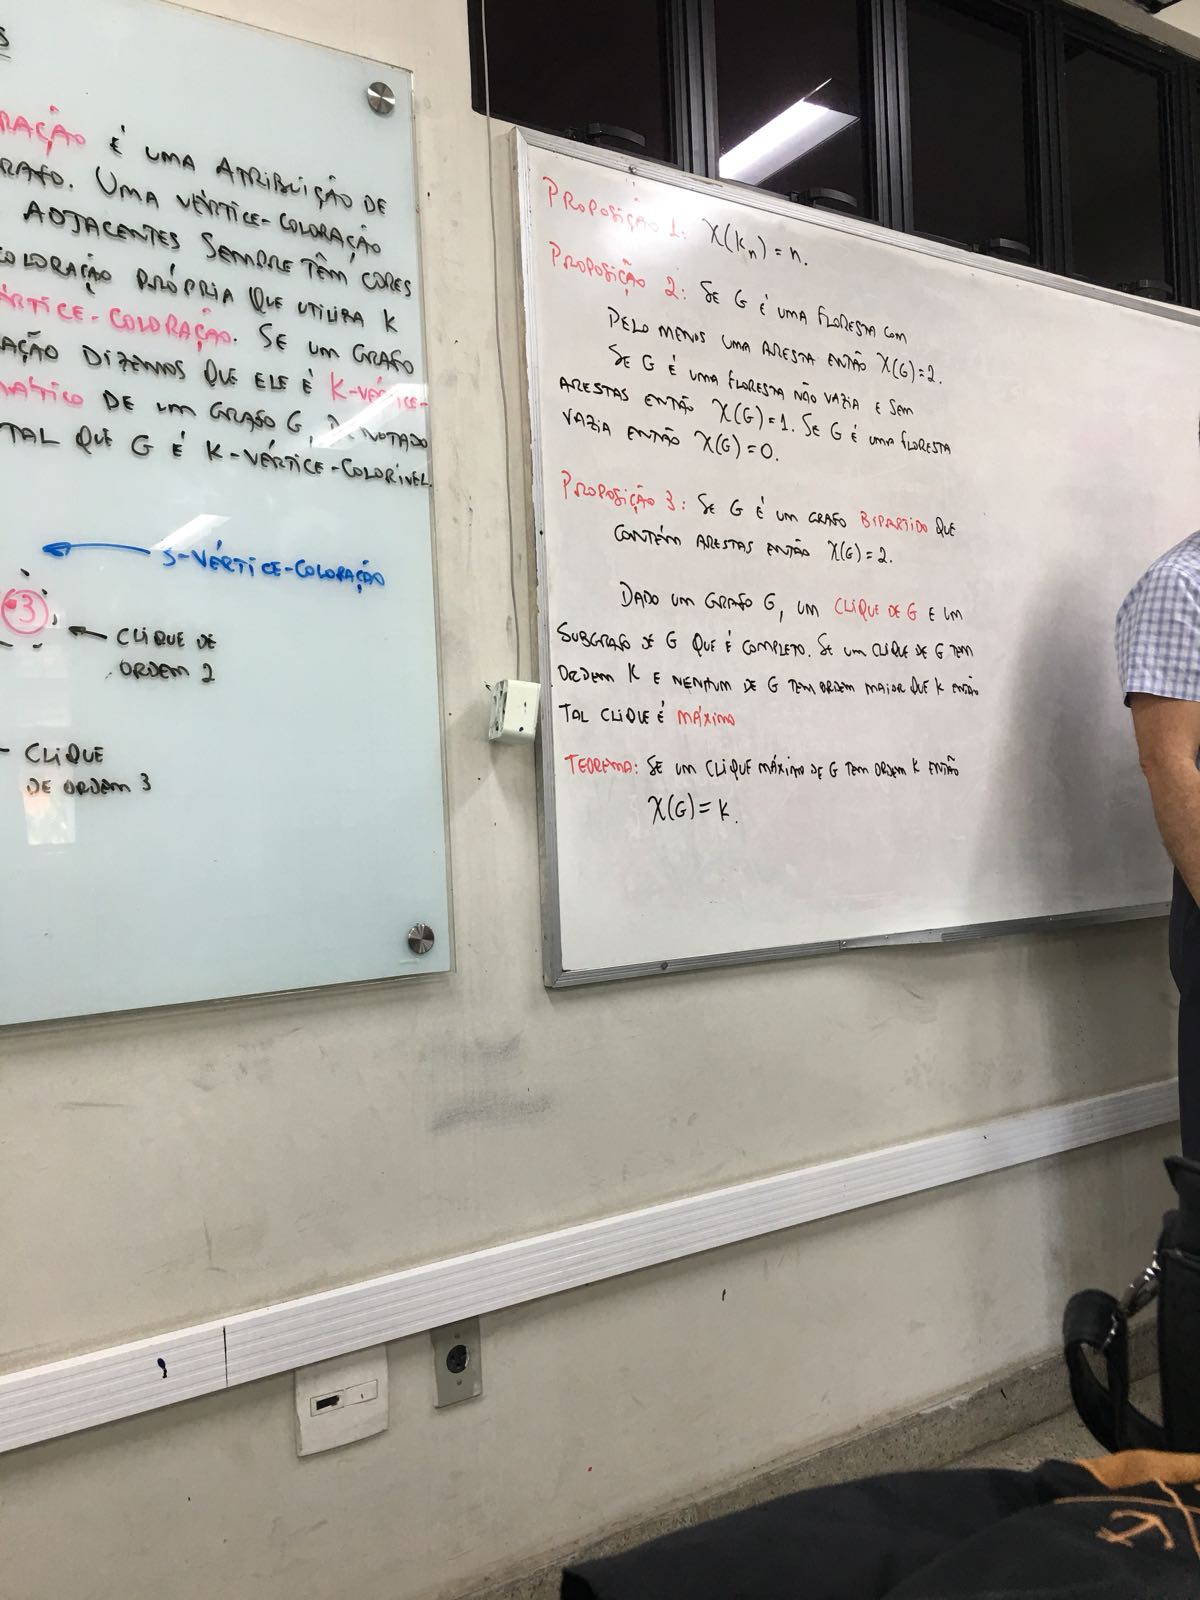 S
RAÇÃO É UMA ATRIBUIÇÃO DE
RAFO. UMA VÉRTICE-COLORAÇÃO
ADJACENTES SEMPRE TÊM CORES
COLORAÇÃO PRÓPRIA QUE UTILIZA K
ÉRTICE-COLORAÇÃO. SE UM GRAFO
AÇÃO DIZEMOS QUE ELE É K-VÉRTICE-
MÁTICO DE UM GRAFO G, DENOTADO
TAL QUE G É K-VÉRTICE-COLORÍVEL.
3-VÉRTICE-COLORAÇÃO
3
CLIQUE DE
ORDEM 2
CLIQUE
DE ORDEM 3
PROPOSIÇÃO 1: χ(Kn) = n.
PROPOSIÇÃO 2: SE G É UMA FLORESTA COM
PELO MENOS UMA ARESTA ENTÃO χ(G)=2.
SE G É UMA FLORESTA NÃO VAZIA E SEM
ARESTAS ENTÃO χ(G)=1. SE G É UMA FLORESTA
VAZIA ENTÃO χ(G)=0.
PROPOSIÇÃO 3: SE G É UM GRAFO BIPARTIDO QUE
CONTÉM ARESTAS ENTÃO χ(G)=2.
DADO UM GRAFO G, UM CLIQUE DE G E UM
SUBGRAFO DE G QUE É COMPLETO. SE UM CLIQUE DE G TEM
ORDEM K E NENHUM DE G TEM ORDEM MAIOR QUE K ENTÃO
TAL CLIQUE É MÁXIMO
TEOREMA: SE UM CLIQUE MÁXIMO DE G TEM ORDEM K ENTÃO
χ(G) = K.